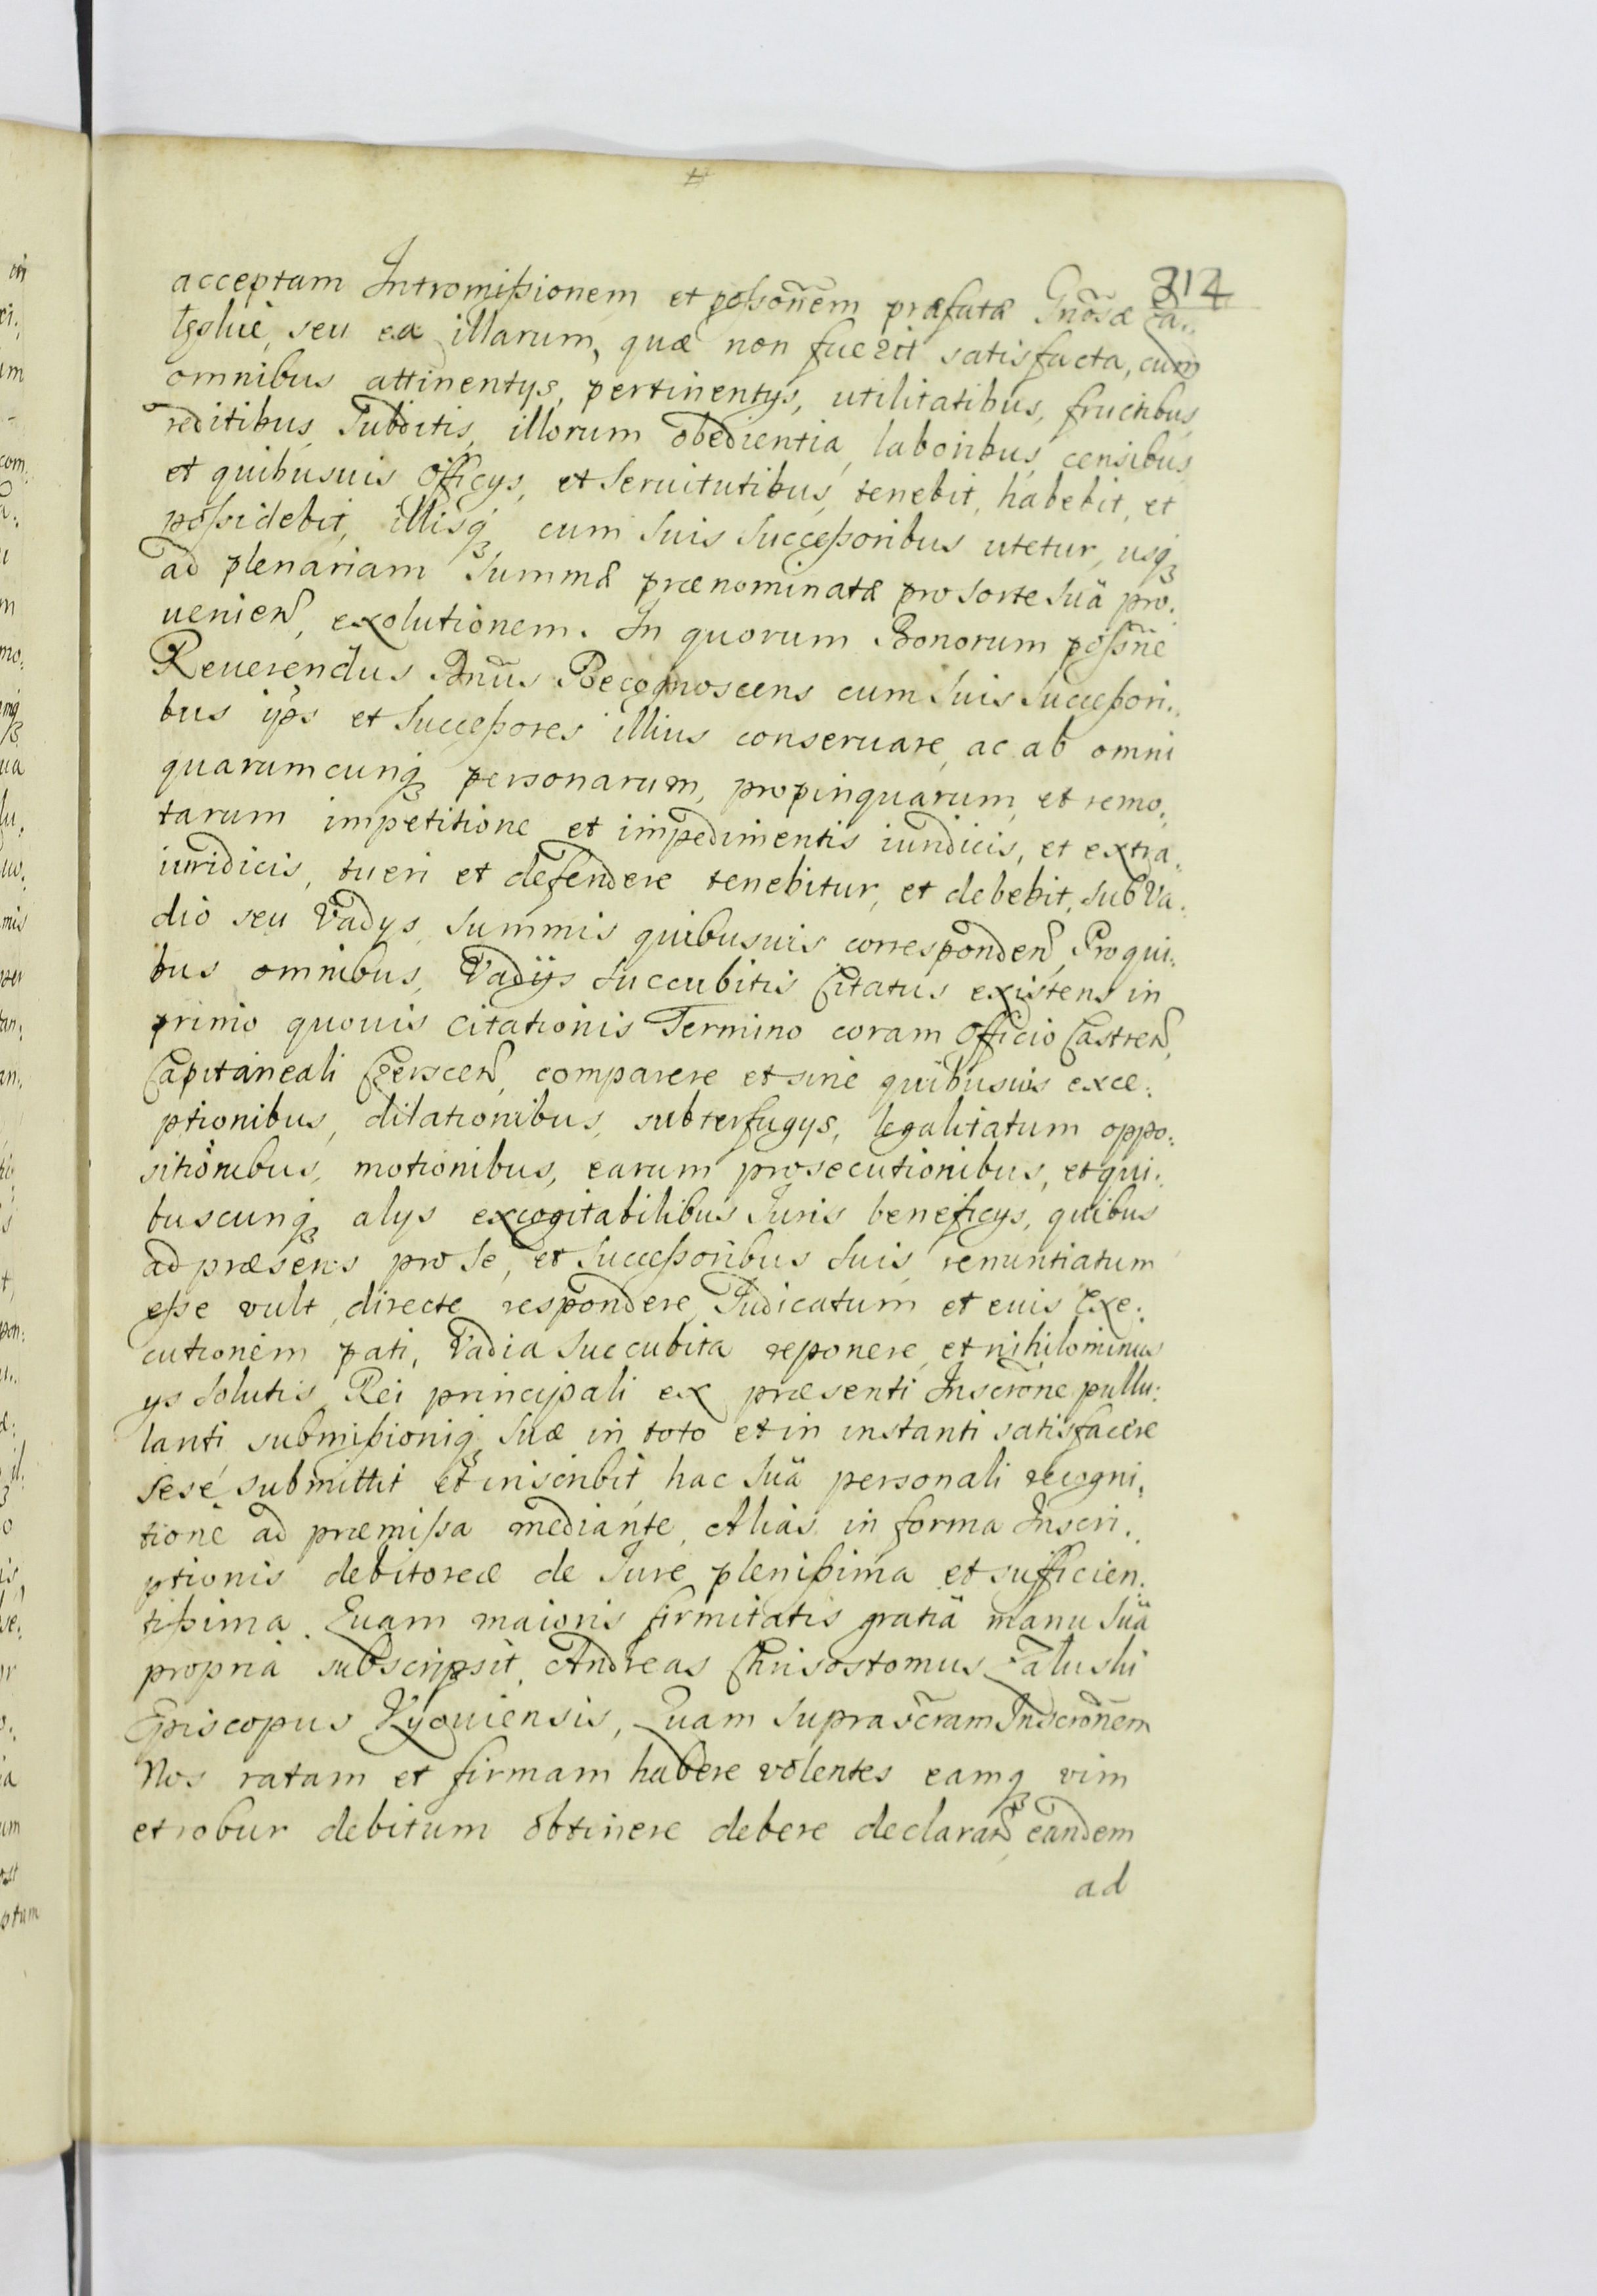 312
acceptam Intromißionem et poßoñem præfatæ Gñosæ Za„
łęskie, seu ea illarum, quæ non fuerit satisfacta, cum
omnibus attinentys, pertinentys, utilitatibus, fructibus,
reditibus, Subditis, illorum obedientia, laboribus, censibus,
et quibusuis officys, et Seruitutibus, tenebit, habebit, et
poßidebit, illisq̃ cum Suis Succeßoribus utetur, usq̃
ad plenariam Summæ prænominatæ pro Sorte Suä pro:
uenień, exolutionem. In quorum Bonorum poßñe
Reuerendus Dñus Recognoscens cum Suis Succeßori„
bus ip̃s et Succeßores illius conseruare, ac ab omni
quarumcunq̃ personarum, propinquarum, et remo:
tarum impetitione et impedimentis iuridicis, et extra„
iuridicis, tueri et defendere tenebitur, et debebit, sub Va:
dio seu Vadys, Summis quibusuis corresponden̄, Pro qui:
bus omnibus, Vadijs Succubitis Citatus existens in
primo quouis Citationis Termino coram Officio Castren̄,
Capitaneali Czerscen̄, comparere et sine quibusuis exce:
ptionibus, dilationibus, subterfugys, legalitatum oppo:
sitionibus, motionibus, earum prosecutionibus, et qui:
buscunq̃ alys excogitabilibus Iuris beneficys, quibus
ad præsens pro Se, et Succeßoribus Suis, renuntiatum
eße vult, directe respondere, Iudicatum et euis Exe:
cutionem pati, Vadia Succubita reponere, et nihilominus
ys Solutis, Rei principali ex præsenti Inscrõne pullu:
lanti, submißioniq̃ Suæ in toto et in instanti satisfacere
sese submittit et inscribit hac Suä personali recogni„
tione ad præmißa mediante, Alias in forma Inscri„
ptionis debitoreæ de Iure plenißima et sufficien:
tißima. Quam maioris firmitatis gratiä manu Suä
propria subscripsit, Andreas Chrisostomus Załuski
Episcopus Kyouiensis, Quam Suprascr̃am Inscrõnem
Nos ratam et firmam habere volentes eamq̃ vim
et robur debitum obtinere debere declaran̄, eandem
ad